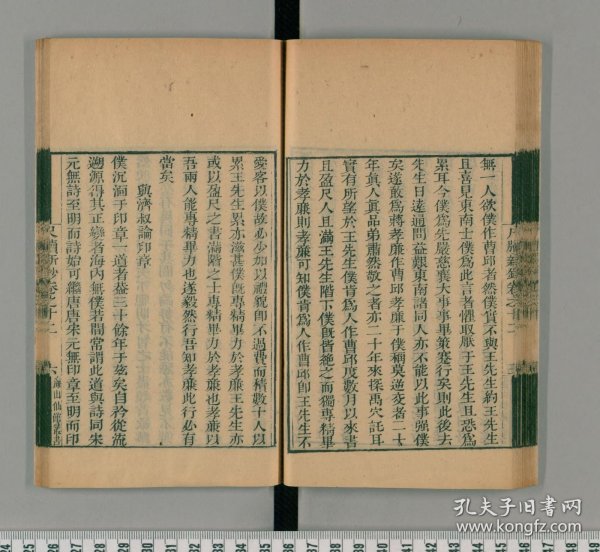 無一人欲僕作曹邱者然僕實不與王先生約王先生
且喜見東南士僕爲此言者懼取厭于王先生且恐爲
累耳今僕爲先嚴慈襄大事事畢策蹇行矣則此後去
先生日遠通問益艱東南諸同人亦不能以此事強僕
矣遂敢爲蔣孝廉作曹邱孝廉于僕稱莫逆交者二十
年眞人眞品弟肅然敬之者亦二十年來探禹穴託耳
實有所望於王先生僕肯爲人作曹邱度數月以來書
且盈尺人且滿王先生階下僕旣皆絶之而獨專精畢
力於孝廉則孝廉可知僕肯爲人作曹邱卽王先生不
愛客以僕故必少加以禮貌卽不過費而積數十人以
累王先生累亦滋甚僕旣專精畢力於孝廉王先生亦
或以盈尺之書滿階之士專精畢力於孝廉也孝廉以
吾兩人能專精畢力也遂毅然行吾知孝廉此行必有
當矣
與濟叔論印章
僕沉湎于印章一道者葢三十餘年于茲矣自矜從流
遡源得其正變者海內無僕若間常謂此道與詩同宋
元無詩至明而詩始可繼唐唐宋元無印章至明而印
尺牘新鈔卷之十二
六
賴山仙館叢書
孔夫子旧书网
www.kongfz.com
24 25 26 27 28 29 30 31 32 33 34 35 36 37 38 39 40 41 42 43 44 45 46 47 48 49